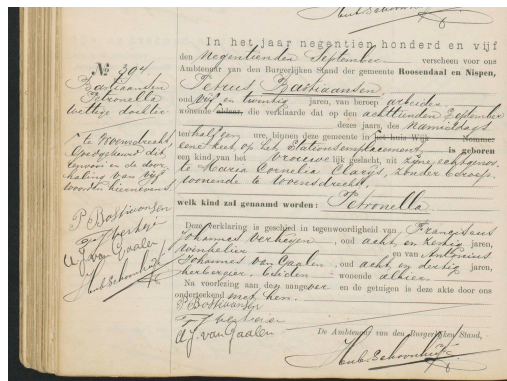 Hub. Schoonheijt
Nº 394
Bastiaansen
Petronella
wettige dochter
te Woensdrecht.
Goedgekeurd de
renvooi en de door-
haling van vijf
woorden hiernevens.
P Bastiaansen
A. J. van Gaalen
Hub. Schoonheijt
In het jaar negentien honderd en vijf
den negentienden September verscheen voor ons
Ambtenaar van den Burgerlijken Stand der gemeente Roosendaal en Nispen,
Petrus Bastiaansen
oud vijf en twintig jaren, van beroep arbeider
wonende alhier, die verklaarde dat op den achttienden September
dezes jaars, des namiddags
ten half tien ure, binnen deze gemeente in het huis Wijk Nommer
eene kerk op het Stationsemplacement, is geboren
een kind van het vrouwelijk geslacht, uit zijne echtgenoote
Maria Cornelia Clarijs, zonder beroep,
wonende te Woensdrecht,
welk kind zal genaamd worden: Petronella
Deze verklaring is geschied in tegenwoordigheid van Franciscus
Johannes Verheijen, oud acht en zestig jaren,
winkelier en van Antonius
Johannes van Gaalen, oud acht en dertig jaren,
herbergier, beiden wonende alhier
Na voorlezing aan den aangever en de getuigen is deze akte door ons
onderteekend met hen.
P Bastiaansen
F J verheijen
A. J. van Gaalen
De Ambtenaar van den Burgerlijken Stand,
Hub. Schoonheijt